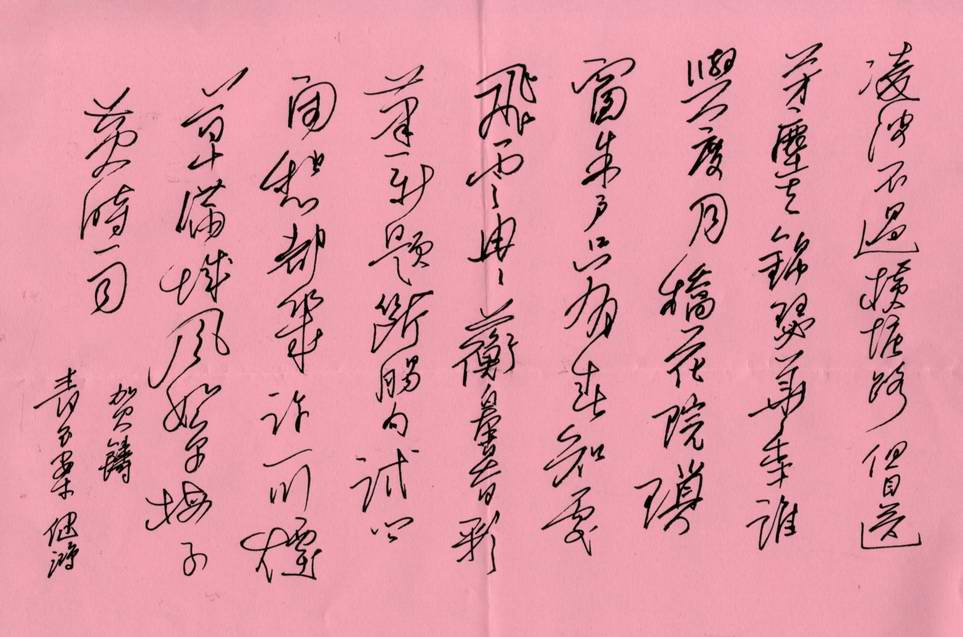 凌波不過橫塘路但目送
芳塵去錦瑟華年誰
與度月橋花院瑣
窗朱戶只有春知處
飛雲冉冉蘅皋暮彩
筆新題斷腸句試問
閑愁都幾許一川煙
草滿城風絮梅子
黃時雨
賀鑄
青玉案